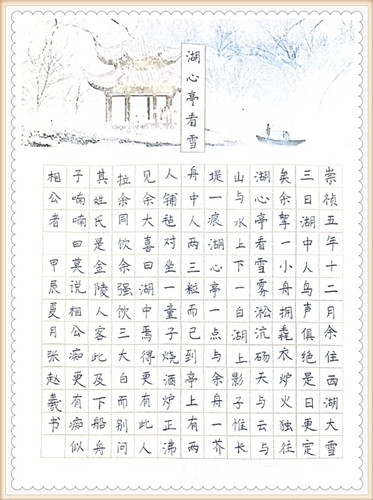 湖心亭看雪
崇祯五年十二月余住西湖大雪
三日湖中人鸟声俱绝是日更定
矣余拏一小舟拥毳衣炉火独往
湖心亭看雪雾凇沆砀天与云与
山与水上下一白湖上影子惟长
堤一痕湖心亭一点与余舟一芥
舟中人两三粒而已到亭上有两
人铺毡对坐一童子烧酒炉正沸
见余大喜曰湖中焉得更有此人
拉余同饮余强饮三大白而别问
其姓氏是金陵人客此及下船舟
子喃喃曰莫说相公痴更有痴似
相公者 甲辰夏月张赵羲书